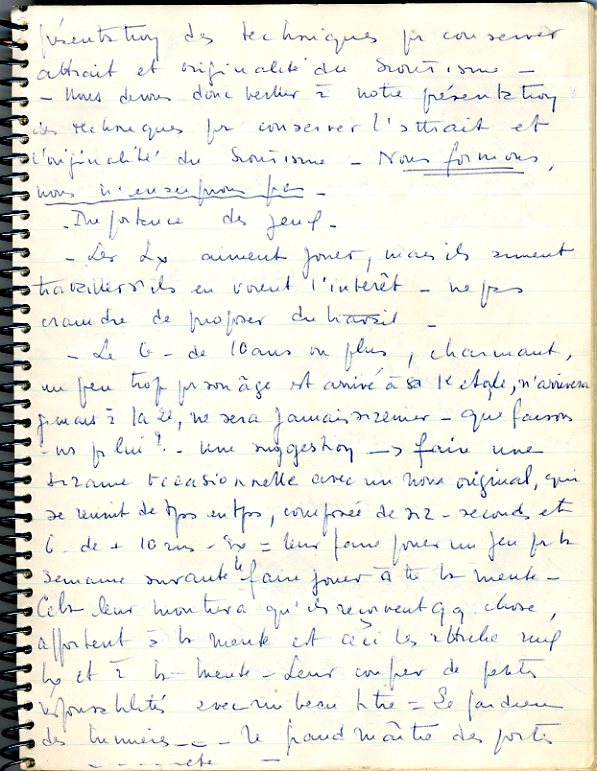 présentation des techniques pr conserver
attrait et originalité du scoutisme -
- Nous devons donc veiller à notre présentation
des techniques pr conserver l'attrait et
l'originalité du scoutisme - Nous formons,
nous n'enseignons pas -
- Importance des jeux -
- Les Lx aiment jouer, mais ils aiment
travailler s'ils en voient l'intérêt - ne pas
craindre de proposer du travail -
- Le G - de 10 ans ou plus, charmant,
un peu trop pr son âge est arrivé à sa 1e étoile, n'arrivera
jamais à la 2e, ne sera jamais sizenier - que faisons
-ns p lui ? - Une suggestion -> faire une
sizaine occasionnelle avec un nom original, qui
se réunit de tps en tps, composée de siz - seconds et
G - de + 10 ans - Ex = leur faire jouer un jeu p la
semaine suivante le faire jouer à tte la meute -
Cela leur montrera qu'ils reçoivent qq chose,
apportent à la meute et ceci les attache aux
Lx et à la meute - Leur confier de petites
responsabilités avec un beau titre = Le gardien
des lumières - - - le grand maître des portes
- - - - - etc -